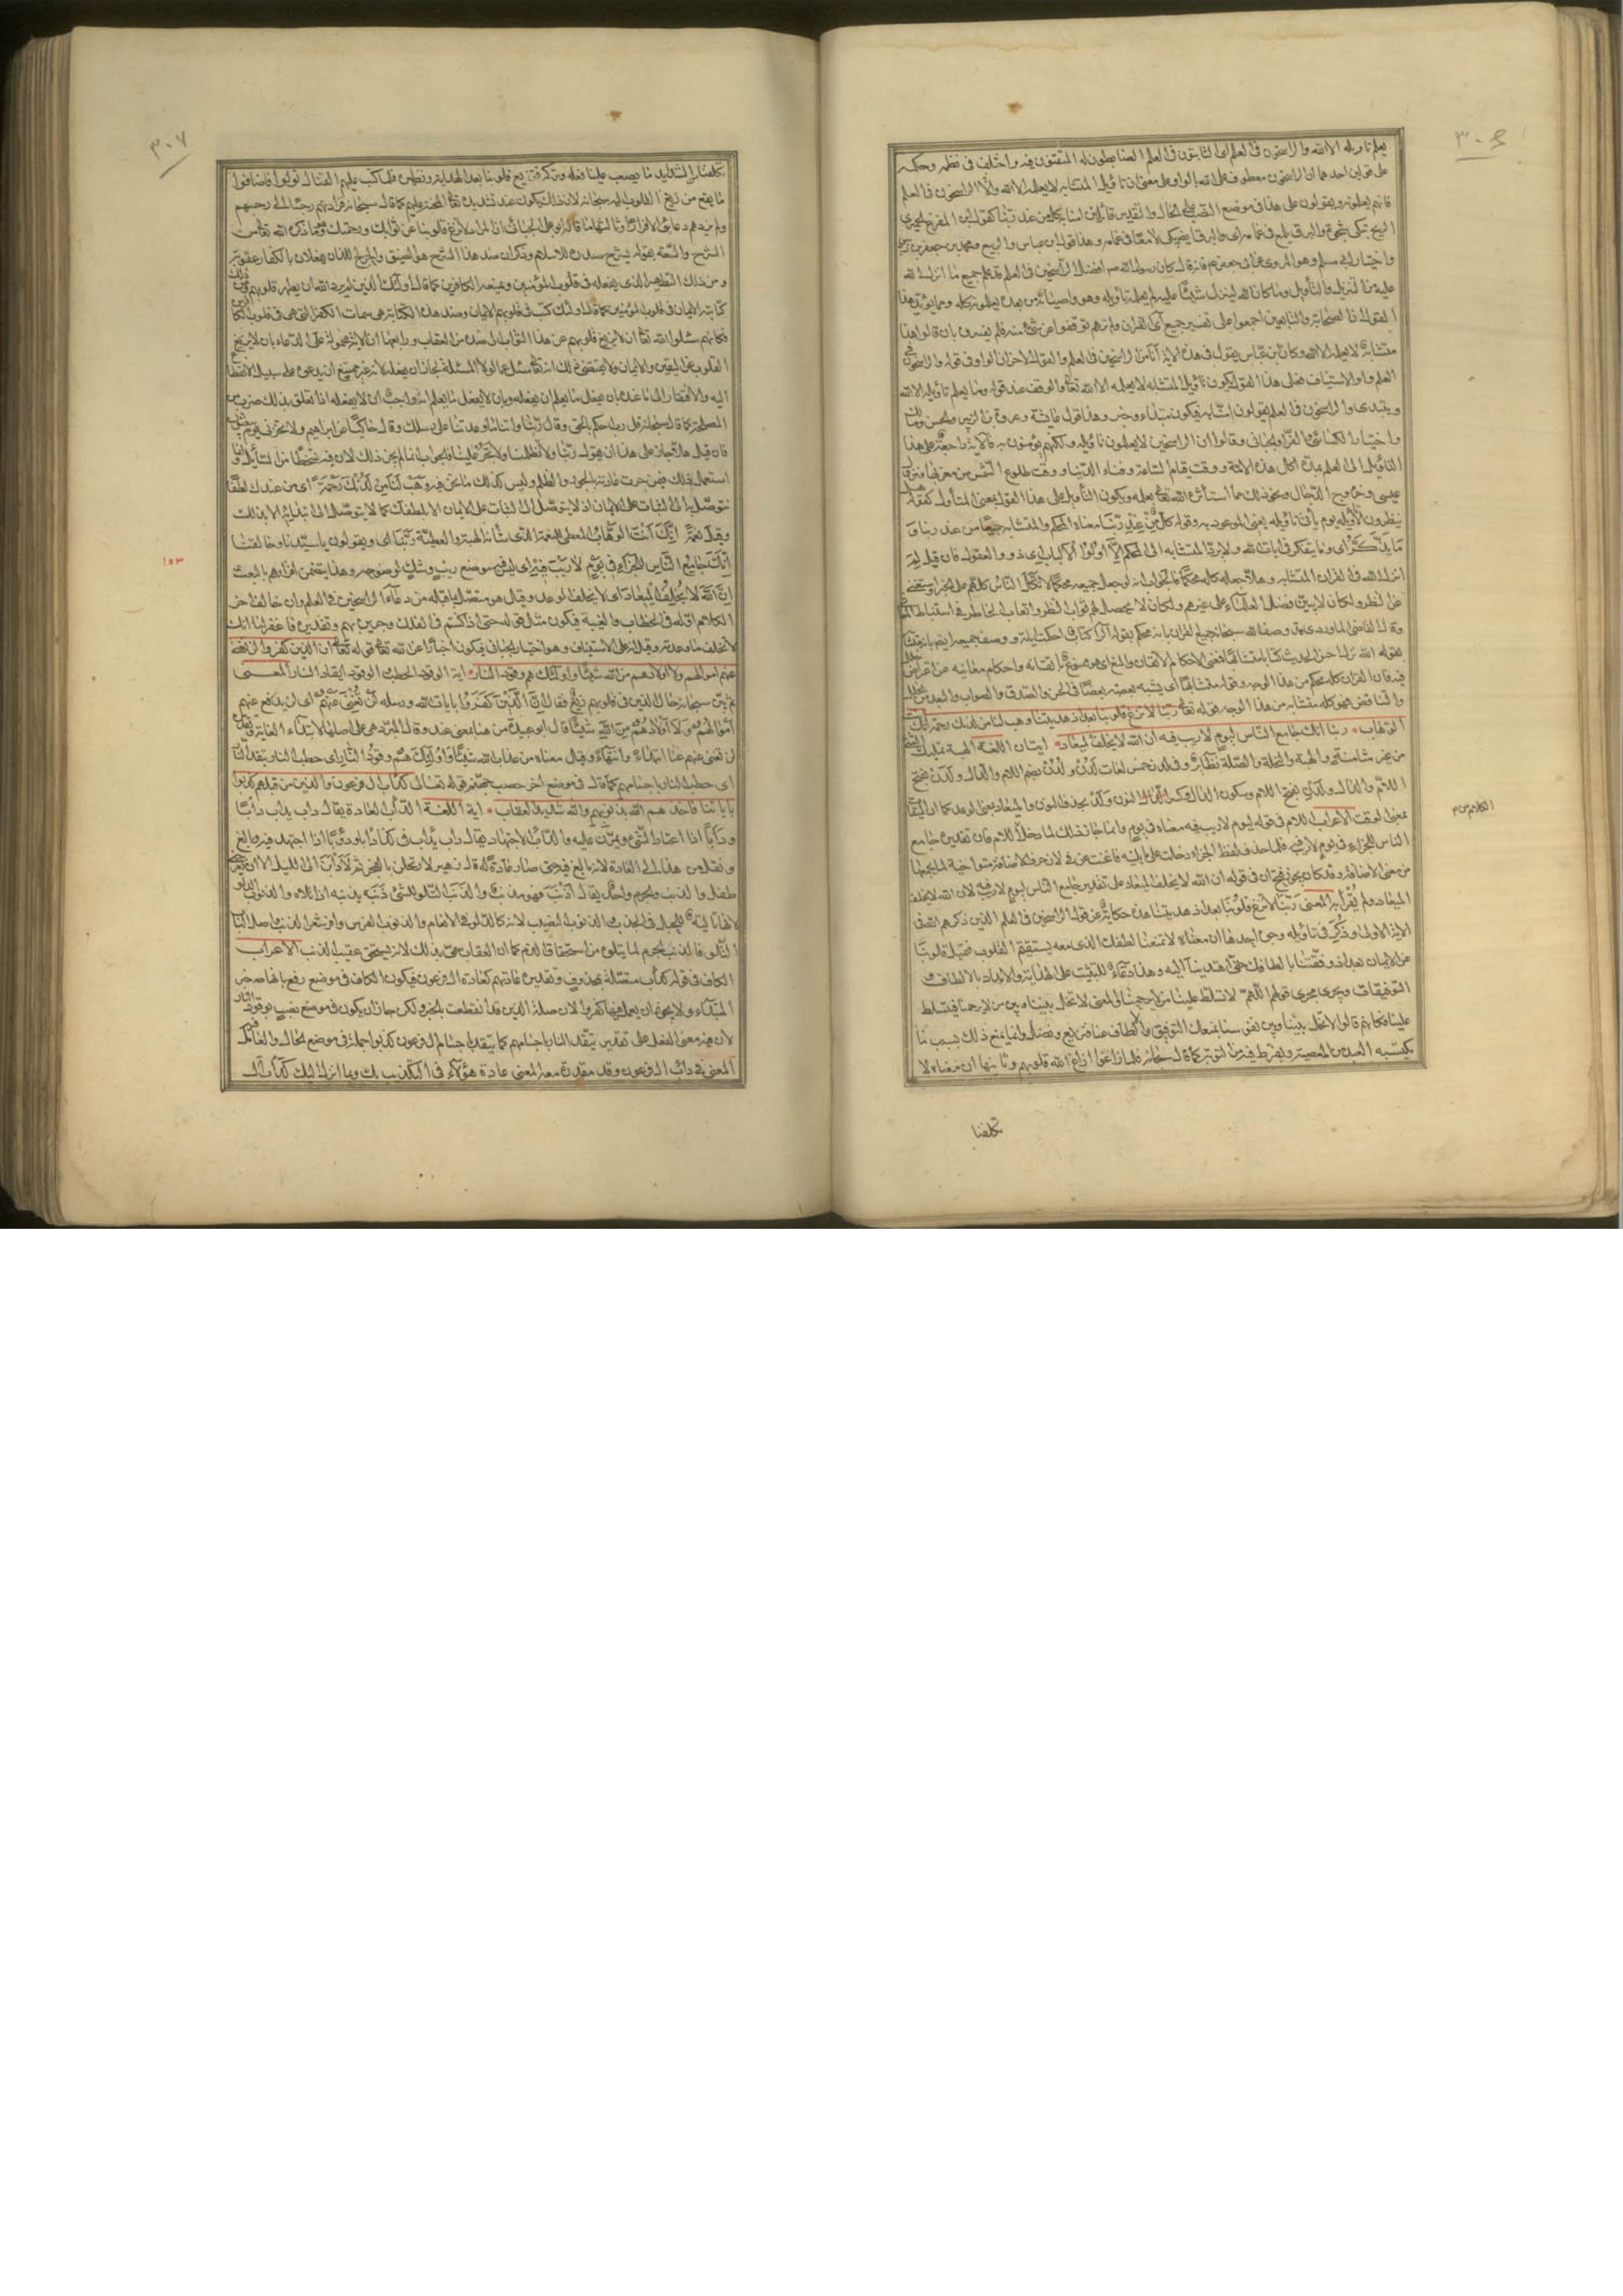 ٣٠٦
يعلم تاويله الا الله والراسخون فى العلم اى الثابتون فى العلم الضابطون له المتقنون فيه واختلف فى نظمه وحكمه
على قولين احدهما ان الراسخون معطوف على الله بالواو على معنى ان تاويل المتشابه لا يعلمه الا الله والا الراسخون فى العلم
فانهم يعلمونه ويقولون على هذا فى موضع النصب على الحال والتقدير قائلين امنا به كل من عند ربنا كقول ابن المفرغ الحميرى
الريح تبكى شجوة والبرق يلمع فى غمامه اى والبرق ايضا يبكيه لامعا فى غمامه وهذا قول ابن عباس والربيع ومحمد بن جعفر بن الزبير
واختيار ابى مسلم وهو المروى عن ابى جعفر ع فانه قال كان رسول الله ص افضل الراسخين فى العلم قد علم جميع ما انزل الله
عليه من التنزيل والتأويل وما كان الله لينزل شيئا عليه لم يعلمه تأويله وهو واوصيائه من بعده يعلمونه كله ومما يؤيد هذا
القول ان الصحابة والتابعين اجمعوا على تفسير جميع آى القران ولم نرهم توقفوا عن شئ منه فلم يفسروه بان قالوا هذا
متشابه لا يعلمه الا الله وكان ابن عباس يقول فى هذه الاية انا من الراسخين فى العلم والقول الاخر ان الواو فى قوله والراسخون فى
العلم واو الاستيناف فعلى هذا القول يكون تأويل المتشابه لا يعلمه الا الله تعالى والوقف عند قوله وما يعلم تأويله الا الله
ويبتدى والراسخون فى العلم يقولون امنا به فيكون مبتداء وخبر وهذا قول عائشة وعروة بن الزبير والحسن ومالك
واختيار الكسائى والفراء والجبائى وقالوا ان الراسخين لا يعلمون تأويله ولكنهم يؤمنون به فالاية راجعة على هذا
التأويل الى العلم بمدة اكل هذه الامة ووقت قيام الساعة وفناء الدنيا ووقت طلوع الشمس من مغربها ونزول
عيسى وخروج الدجال ونحو ذلك مما استأثر الله تعالى بعلمه ويكون التأويل على هذا القول بمعنى المتأول كقوله هل
ينظرون الا تأويله يوم يأتى تأويله يعنى الموعود به وقوله كل من عند ربنا معناه المحكم والمتشابه جميعا من عند ربنا و
ما يذكر اى وما يتفكر فى ايات الله ولا يرد المتشابه الى المحكم الا اولوا الالباب اى ذووا العقول فان قيل لم
انزل الله فى القران المتشابه وهلا جعله كله محكما فالجواب انه لو جعل جميعه محكما لاتكل الناس كلهم على الخبر واستغنى
عن النظر ولكان لا يتبين فضل العلماء على غيرهم ولكان لا يحصل لهم ثواب النظر واتعاب الخاطر فى استنباط المعانى
وقال القاضى الماوردى قد وصف الله سبحانه جميع القران بانه محكم بقوله آلر كتاب احكمت اياته ووصف جميعه ايضا بانه متشابه
بقوله الله نزل احسن الحديث كتابا متشابها فمعنى الاحكام الاتقان والمنع اى هو ممنوع باتقانه واحكام معانيه عن اعتراض خلل
فيه فان القران كله محكم من هذا الوجه وقوله متشابها اى يشبه بعضه بعضا فى الحسن والصدق والصواب والبعد من الخلل
والتناقض فهو كله متشابه من هذا الوجه قوله تعالى ربنا لا تزغ قلوبنا بعد اذ هديتنا وهب لنا من لدنك رحمة انك انت
الوهاب ربنا انك جامع الناس ليوم لا ريب فيه ان الله لا يخلف الميعاد ايتان اللغة الهبة تمليك الشئ
من غير مثامنة والهبة والنحلة والصلة نظائر وفى لدن خمس لغات لدن ولدن بضم اللام والدال ولدن بفتح
اللام والدال ولدن بفتح اللام وسكون الدال وكسر النون ولد بحذف النون والميعاد بمعنى الوعد كما ان الميقات
بمعنى الوقت الاعراب اللام فى قوله ليوم لا ريب فيه معناه فى يوم وانما جاز ذلك لما دخل اللام فان تقديره جامع
الناس للجزاء فى يوم لا ريب فيه فلما حذف لفظ الجزاء دخلت على ما يليه فاغنت عن فى لان حرف الاضافة متواخية لما يجمعها
من معنى الاضافة وقد كان يجوز فتح ان فى قوله ان الله لا يخلف الميعاد على تقدير جامع الناس ليوم لا ريب فيه لان الله لا يخلف
الميعاد ولم يقرأ به المعنى ربنا لا تزغ قلوبنا بعد اذ هديتنا هذه حكاية عن قول الراسخين فى العلم الذين ذكرهم الله فى
الاية الاولى وذكر فى تاويله وجوه احدها ان معناه لا تمنعنا لطفك الذى معه يستقيم القلوب فتميل قلوبنا
عن الايمان بعد اذ وفقتنا بالطافك حتى اهتدينا اليه وهذا دعاء للتثبيت على الهداية والامداد بالالطاف و
التوفيقات ويجرى مجرى قولهم اللهم لا تسلط علينا من لا يرحمنا والمعنى لا تخل بيننا وبين من لا يرحمنا فيتسلط
علينا فكانهم قالوا لا تخل بيننا وبين نفوسنا بمنعك التوفيق والالطاف عنا فنزيغ ونضل وانما يمنع ذلك بسبب ما
يكتسبه العبد من المعصية ويفرط فيه من التوبة كما قال سبحانه فلما زاغوا ازاغ الله قلوبهم وثانيها ان معناه لا
تكلفنا
٣٠٧
تكلفنا من الشدايد ما يصعب علينا فعله وتركه فتزيغ قلوبنا بعد الهداية ونظيره فلما كتب عليهم القتال تولوا فاضافوا
ما يقع من زيغ القلوب اليه سبحانه لان ذلك يكون عند تشديده تعالى المحنة عليهم كما قال سبحانه فزادتهم رجسا الى رجسهم
ولم يزدهم دعائى الا فرارا وثالثها ما قاله ابو على الجبائى ان المراد لا تزغ قلوبنا عن ثوابك ورحمتك وهو ما ذكره الله تعالى من
الشرح والسعة بقوله يشرح صدره للاسلام وذكر ان ضد هذا الشرح هو الضيق والحرج اللذان يفعلان بالكفار عقوبة
ومن ذلك التطهير الذى يفعله فى قلوب المؤمنين ويمنعه الكافرين كما قال اولئك الذين لم يرد الله ان يطهر قلوبهم ومن ذلك
كتابته الايمان فى قلوب المؤمنين كما قال اولئك كتب فى قلوبهم الايمان وضد هذه الكتابة هى سمات الكفر التى هى فى قلوب الكافرين
فكانهم سئلوا الله تعالى ان لا يزيغ قلوبهم عن هذا الثواب الى ضده من العقاب ورابعها ان الاية محمولة على الدعاء بان لا يزيغ
القلوب عن اليقين والايمان ولا يقتضى ذلك انه تعالى سئل عما لولا المسئلة لجاز ان يفعله لانه غير ممتنع ان يدعوه على سبيل الانقطاع
اليه والافتقار الى ما عنده بان يفعل ما يعلم ان يفعله وبان لا يفعل ما يعلم انه واجب ان لا يفعله اذا تعلق بذلك ضرب من
المصلحة كما قال سبحانه قل رب احكم بالحق وقال ربنا واتنا ما وعدتنا على رسلك وقال حاكيا عن ابراهيم ولا تخزنى يوم يبعثون
فان قيل هلا جاز على هذا ان يقول ربنا ولا تظلمنا ولا تجر علينا فالجواب انما لم يجز ذلك لان فيه تسخطا من السائل وانما
استعمل ذلك فيمن جرت عادته بالجور والظلم وليس كذلك ما نحن فيه وهب لنا من لدنك رحمة اى من عندك لطفا
نتوصل به الى الثبات على الايمان اذ لا يتوصل الى الثبات على الايمان الا بلطفك كما لا يتوصل الى ابتدائه الا بذلك
وقيل نعمة انك انت الوهاب المعطى للنعمة الذى شأنه الهبة والعطية ربنا اى ويقولون يا سيدنا وخالقنا
انك جامع الناس للجزاء فى يوم لا ريب فيه اى ليس فيه موضع ريب وشك لوضوحه وهذا يتضمن اقرارهم بالبعث
ان الله لا يخلف الميعاد اى لا يخلف الوعد وقيل هو متصل بما قبله من دعاء الراسخين فى العلم وان خالف اخر
الكلام اوله فى الخطاب والغيبة فيكون مثل قوله حتى اذا كنتم فى الفلك وجرين بهم وتقديره فاغفر لنا انك
لا تخلف ما وعدته وقيل انه على الاستيناف وهو اختيار الجبائى فيكون اخبارا عن الله تعالى قوله تعالى ان الذين كفروا لن تغنى
عنهم اموالهم ولا اولادهم من الله شيئا واولئك هم وقود النار اية الوقود الحطب الوقود ايقاد النار المعنى
ثم بين سبحانه حال الذين فى قلوبهم زيغ فقال ان الذين كفروا بايات الله ورسله لن تغنى عنهم اى لن يدفع عنهم
اموالهم ولا اولادهم من الله شيئا قال ابو عبيدة من هنا بمعنى عند وقال المبرد هى على اصلها لابتداء الغاية وتقديره
لن تغنى عنهم غنا ابتداء وانتهاء وقيل معناه من عذاب الله شيئا واولئك هم وقود النار اى حطب النار يتقد النار
اى حطب النار باجسامهم كما قال فى موضع اخر حصب جهنم قوله تعالى كدأب ال فرعون والذين من قبلهم كذبوا
باياتنا فاخذهم الله بذنوبهم والله شديد العقاب اية اللغة الدأب العادة يقال دأب يدأب دأبا
ودأبا اذا اعتاد الشئ وتمرن عليه والدأب الاجتهاد يقال دأب يدأب فى كذا دأبا ودؤبا اذا اجتهد فيه وبالغ
ونقل من هذا الى العادة لانه بالغ فيه حتى صار عادة له قال زهير لارتحلن بالفجر ثم لادأبن الى الليل الا ان يعرجنى
طفل والذنب والجرم واحد يقال اذنب فهو مذنب والذنب التلو للشئ ذنبه يذنبه اذا تلاه والذنوب الدلو
لانها تالية للحبل فى الجذب والذنوب النصيب لانه كالدلو فى الانعام والذنوب الفرس الوافر شعر الذنب واصل الباب
التلو فالذنب الجرم لما يتلوه من استحقاق الذم كما ان العقاب سمى بذلك لانه يستحق عقيب الذنب الاعراب
الكاف فى قوله كدأب متعلقة بمحذوف وتقديره عادتهم كعادة ال فرعون فيكون الكاف فى موضع رفع بانها خبر
المبتداء ولا يجوز ان يعمل فيها كفروا لان صلة الذين قد انقطعت بالخبر ولكن جاز ان يكون فى موضع نصب بوقود النار
لان فيه معنى الفعل على تقدير تتقد النار باجسامهم كما تتقد باجسام ال فرعون كذبوا جملة فى موضع الحال والعامل فيه
المعنى فى دأب ال فرعون وقد مقدرة معه المعنى عادة هؤلاء فى التكذيب بك وبما انزل اليك كدأب ال
١٥٣